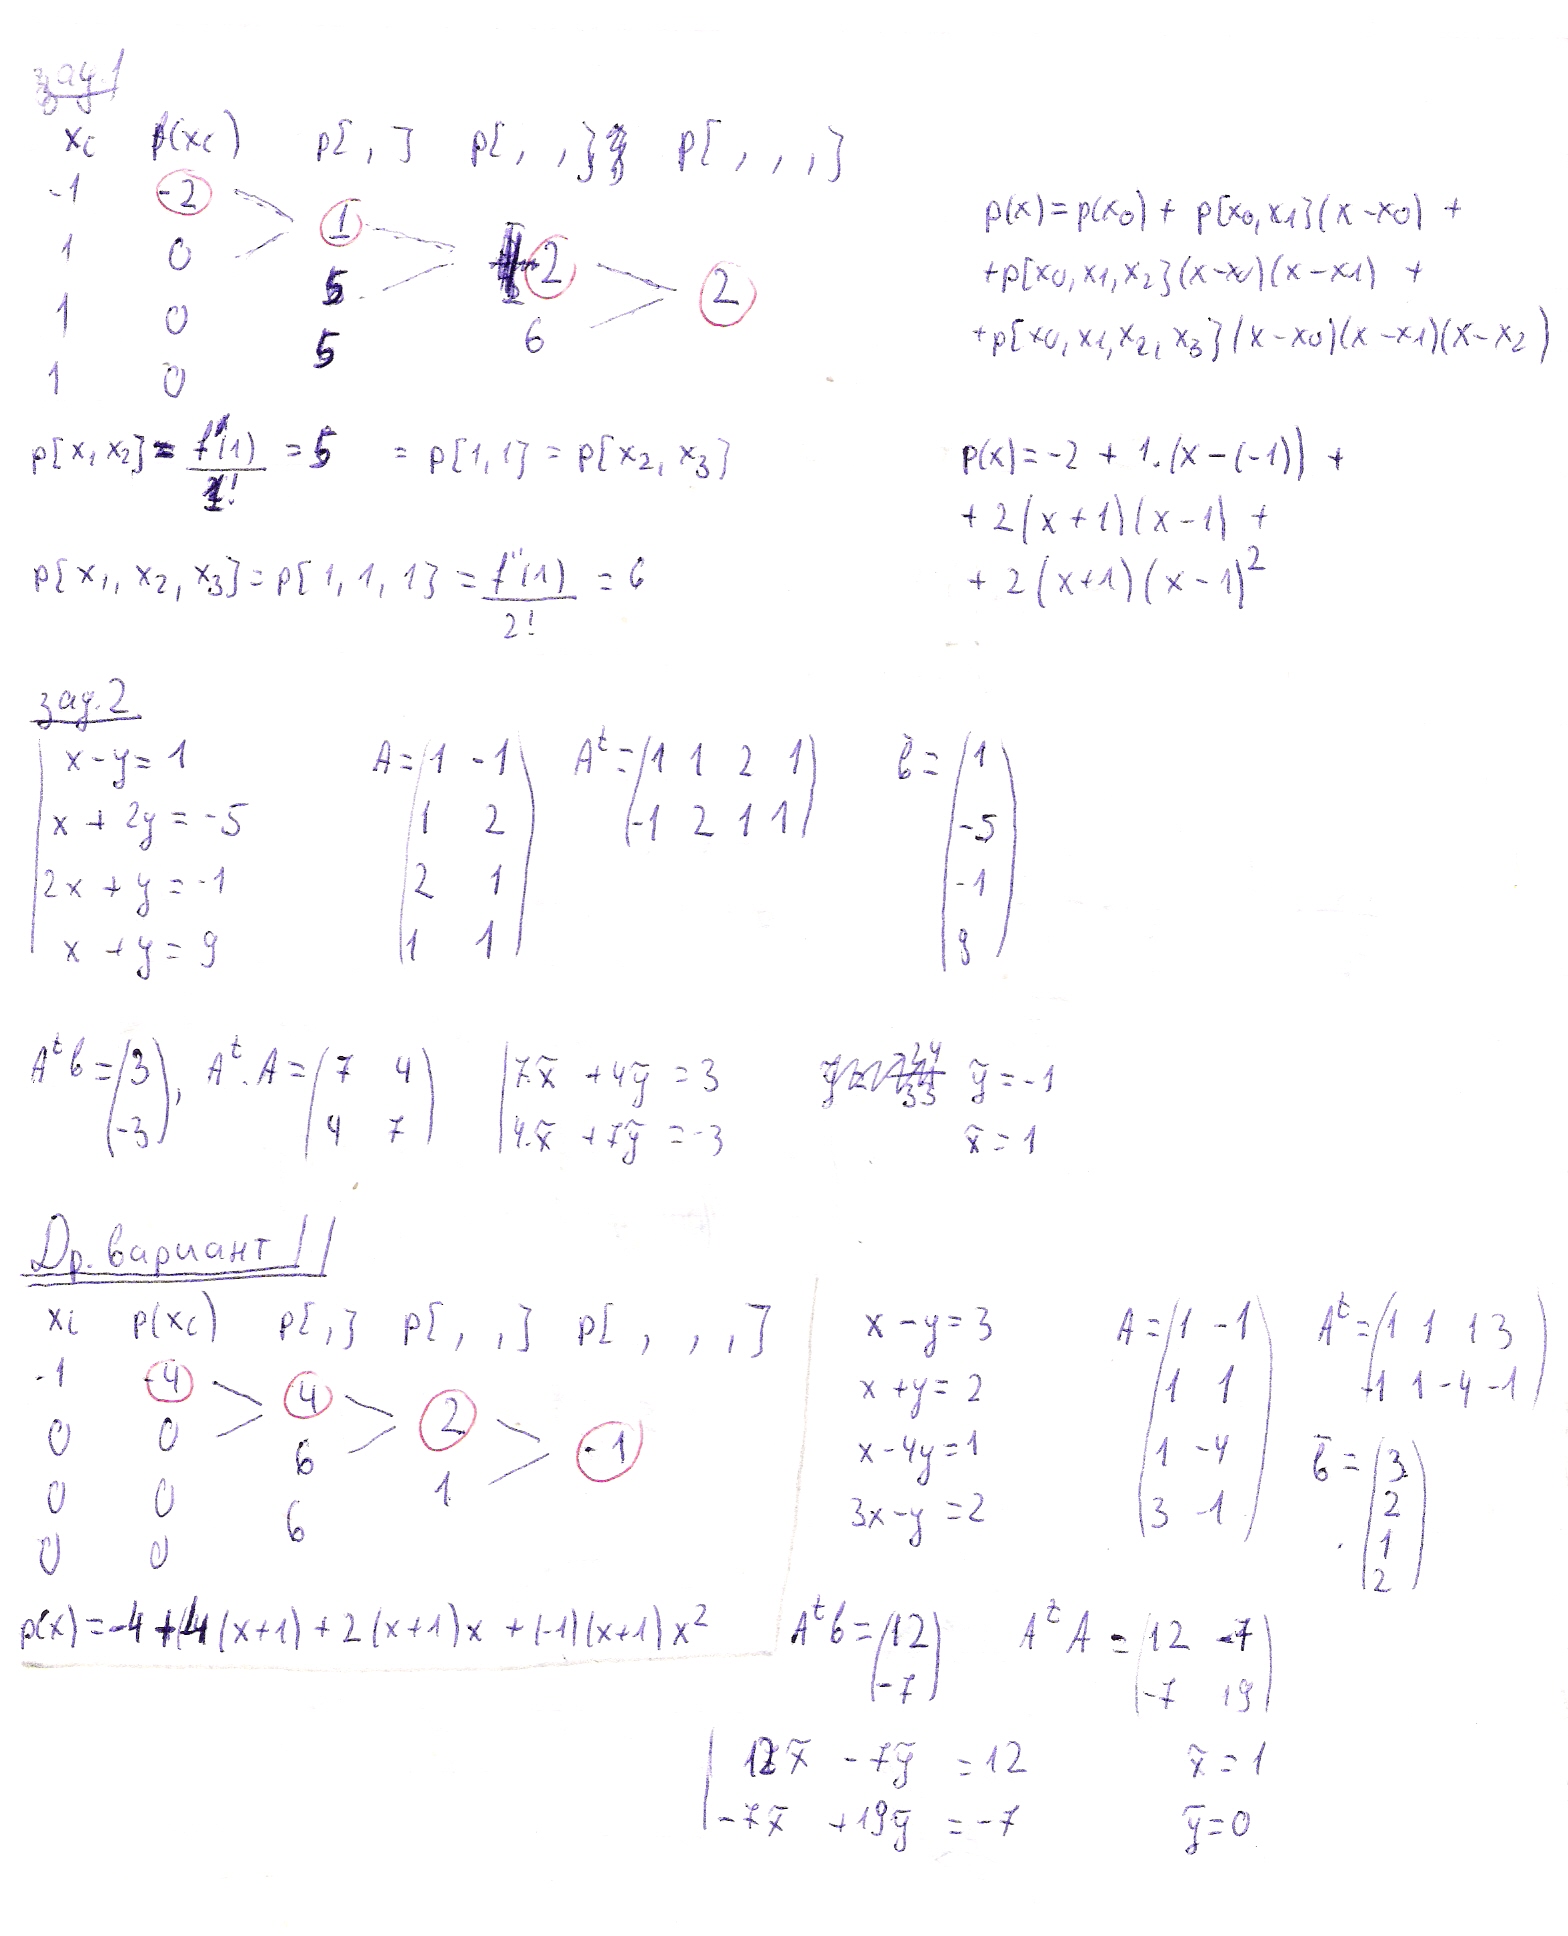 зад.1
xi p(xi) p[ , ] p[ , , ] p[ , , , ]
-1 -2
1 0 1
1 0 5 2
1 0 5 6 2
p(x)=p(x0) + p[x0,x1](x-x0) +
+p[x0,x1,x2](x-x0)(x-x1) +
+p[x0,x1,x2,x3](x-x0)(x-x1)(x-x2)
p[x1,x2] = f'(1)/1! = 5 = p[1,1] = p[x2,x3]
p[x1,x2,x3] = p[1,1,1] = f''(1)/2! = 6
p(x)=-2 + 1.(x-(-1)) +
+ 2(x+1)(x-1) +
+ 2(x+1)(x-1)^2
зад.2
x-y=1
x+2y=-5
2x+y=-1
x+y=9
A=(1 -1
1 2
2 1
1 1)
A^t=(1 1 2 1
-1 2 1 1)
b=(1
-5
-1
9)
A^t b=(3
-3),
A^t.A=(7 4
4 7)
7x̄ +4ȳ =3
4x̄ +7ȳ =-3
ȳ=-1
x̄=1
Др. вариант !!
xi p(xi) p[ , ] p[ , , ] p[ , , , ]
-1 -4 4 2 -1
0 0 6 1
0 0 6
0 0
p(x)=-4+4(x+1)+2(x+1)x+(-1)(x+1)x^2
x-y=3
x+y=2
x-4y=1
3x-y=2
A=(1 -1
1 1
1 -4
3 -1)
A^t=(1 1 1 3
-1 1 -4 -1)
b̄=(3
2
1
2)
A^t b=(12
-7)
A^t A=(12 -7
-7 19)
12x̄ -7ȳ =12
-7x̄ +19ȳ =-7
x̄=1
ȳ=0